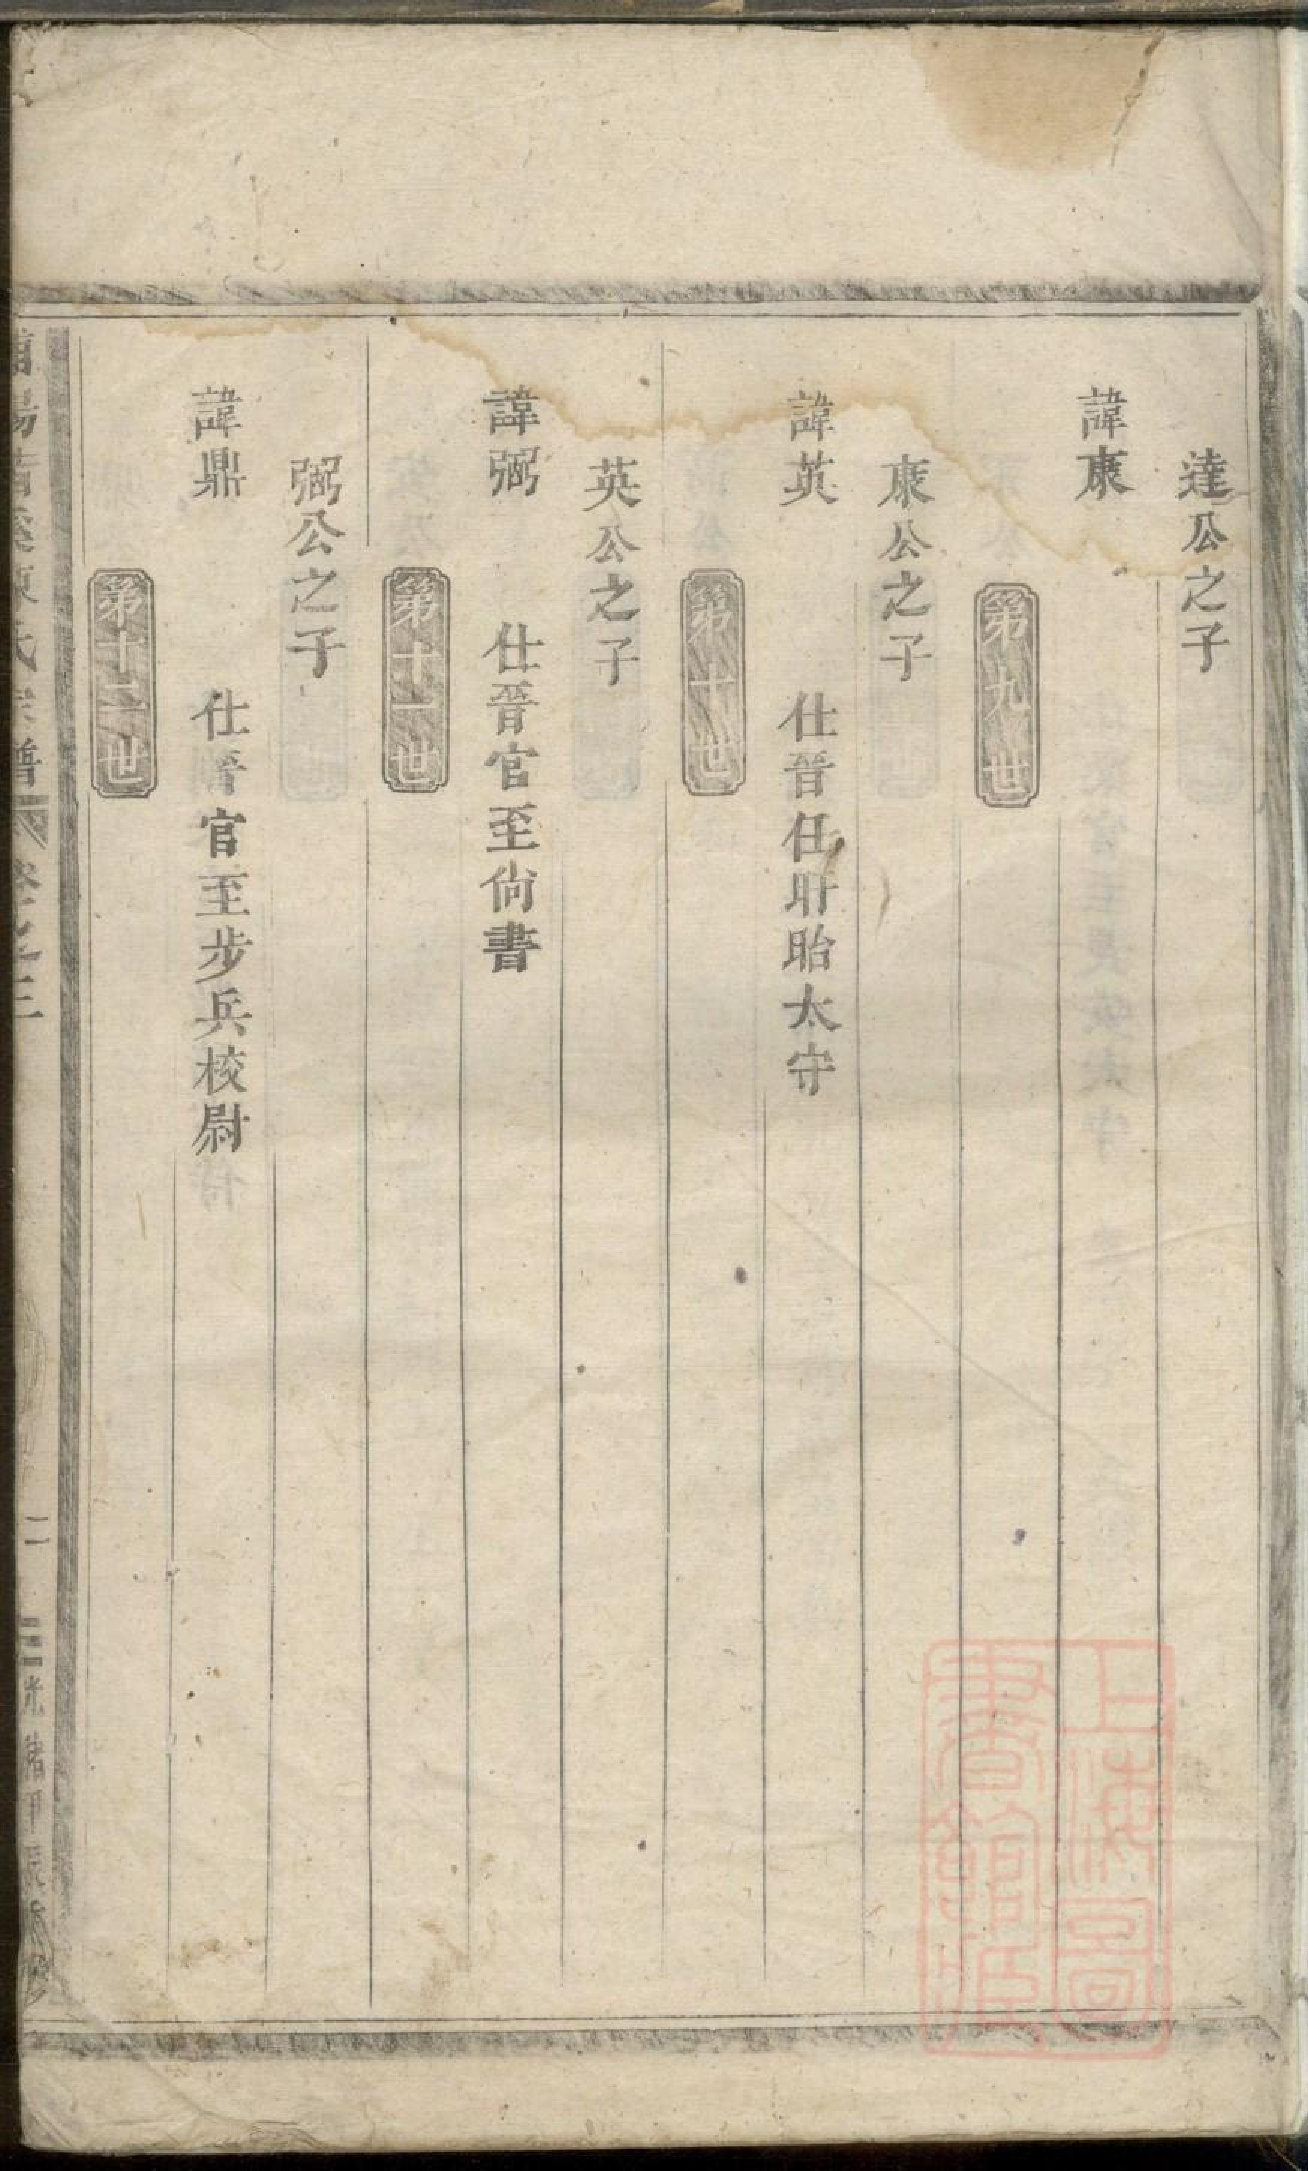 達公之子
諱康
第九世
康公之子
諱英 仕晉任盱眙太守
第十世
英公之子
諱弼 仕晉官至尙書
第十一世
弼公之子
諱鼎 仕晉官至步兵校尉
第十二世
二
光緒甲辰
上海圖
書館藏